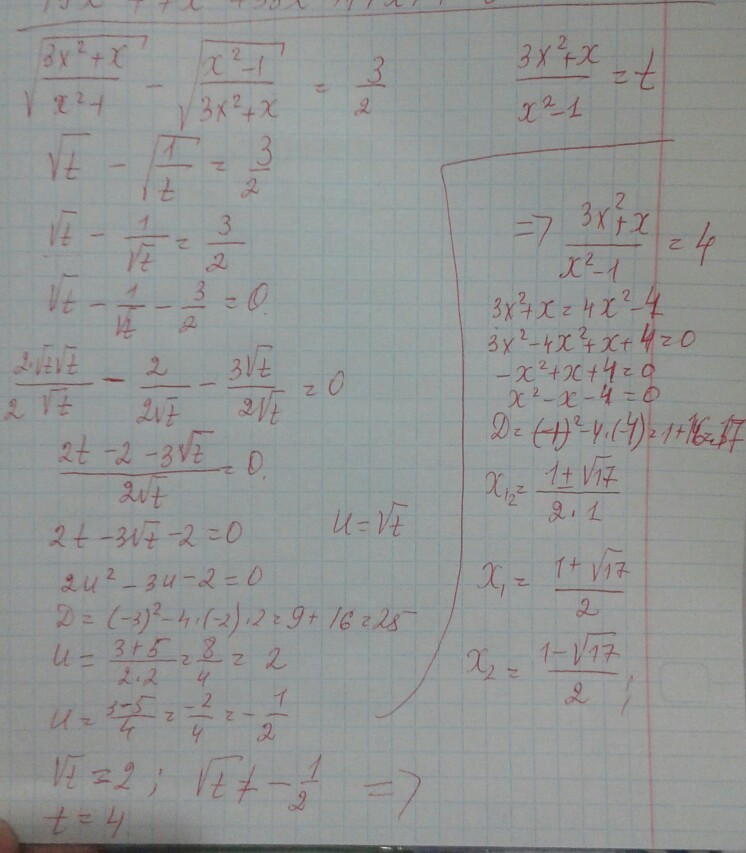 √((3x²+x)/(x²-1)) - √((x²-1)/(3x²+x)) = 3/2
√t - √(1/t) = 3/2
√t - 1/√t = 3/2
√t - 1/√t - 3/2 = 0.
2√t√t/2√t - 2/2√t - 3√t/2√t = 0
(2t - 2 - 3√t)/2√t = 0.
2t - 3√t - 2 = 0
u = √t
2u² - 3u - 2 = 0
D = (-3)² - 4·(-2)·2 = 9 + 16 = 25
u = (3+5)/2·2 = 8/4 = 2
u = (3-5)/4 = -2/4 = -1/2
√t = 2; √t ≠ -1/2 =>
t = 4
(3x²+x)/(x²-1) = t
=> (3x²+x)/(x²-1) = 4
3x²+x = 4x²-4
3x²-4x²+x+4=0
-x²+x+4=0
x²-x-4=0
D = (-1)²-4·(-4)=1+16=17
x₁,₂ = (1±√17)/2·1
x₁ = (1+√17)/2
x₂ = (1-√17)/2;